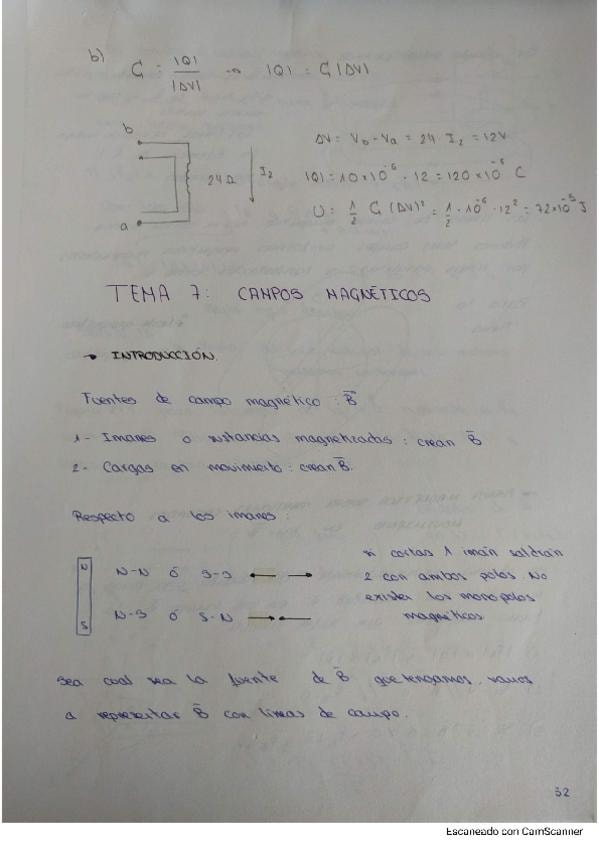 b) C = |Q| / |ΔV| → |Q| = C |ΔV|
b
24Ω
I₂
a
ΔV = Vb - Va = 24 I₂ = 12V
|Q| = 10×10⁻⁶ · 12 = 120×10⁻⁶ C
U = 1/2 C (ΔV)² = 1/2 · 10⁻⁶ · 12² = 72×10⁻⁵ J
TEMA 7: CAMPOS MAGNÉTICOS
→ INTRODUCCIÓN.
Fuentes de campo magnético: B̄
1- Imanes o sustancias magnetizadas: crean B̄
2- Cargas en movimiento: crean B̄.
Respecto a los imanes:
N
S
N-N ó S-S ← →
N-S ó S-N → ←
si cortas 1 imán saldrán
2 con ambos polos. No
existen los monopolos
magnéticos.
Sea cual sea la fuente de B̄ que tengamos, vamos
a representar B̄ con líneas de campo.
32
Escaneado con CamScanner